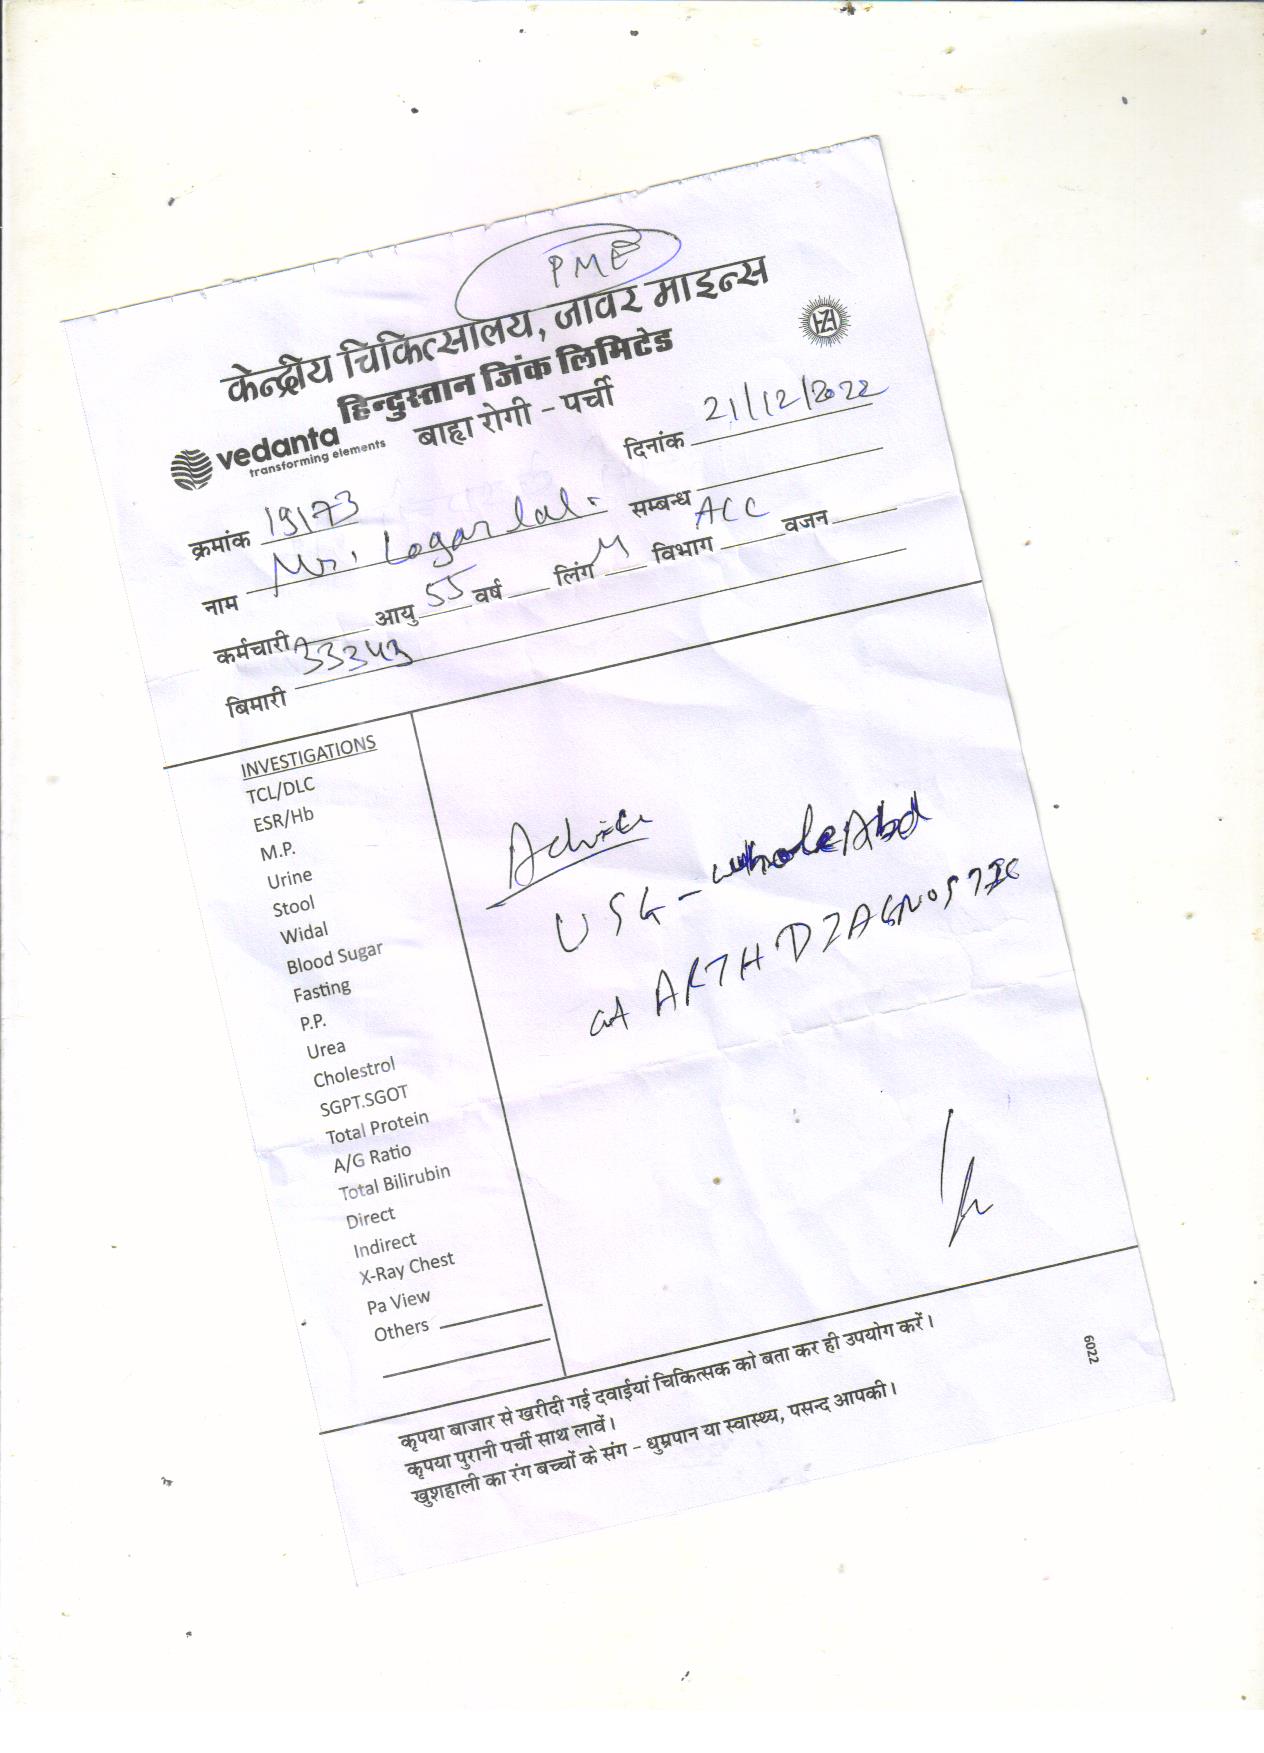 PME
केन्द्रीय चिकित्सालय, जावर माइन्स
हिन्दुस्तान जिंक लिमिटेड
vedanta
transforming elements
बाह्य रोगी - पर्ची
दिनांक 21/12/2022
क्रमांक 19173 सम्बन्ध
नाम Mr. Logar lal.
कर्मचारी आयु 55 वर्ष लिंग M विभाग ACC वजन
बिमारी 33343
INVESTIGATIONS
TCL/DLC
ESR/Hb
M.P.
Urine
Stool
Widal
Blood Sugar
Fasting
P.P.
Urea
Cholestrol
SGPT.SGOT
Total Protein
A/G Ratio
Total Bilirubin
Direct
Indirect
X-Ray Chest
Pa View
Others
Advice
USG - whole Abd
at ARTH DIAGNOSTIC
कृपया बाजार से खरीदी गई दवाईयां चिकित्सक को बता कर ही उपयोग करें।
कृपया पुरानी पर्ची साथ लावें।
खुशहाली का रंग बच्चों के संग - धुम्रपान या स्वास्थ्य, पसन्द आपकी।
6022